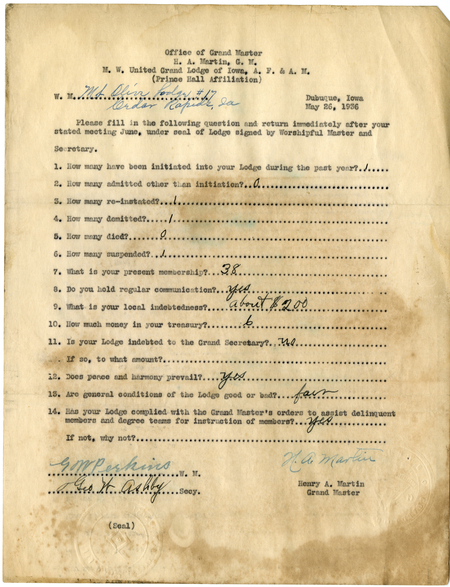 Office of Grand Master
H. A. Martin, G. M.
M. W. United Grand Lodge of Iowa, A. F. & A. M.
(Prince Hall Affiliation)
W. M. Mt Olive Lodge #17
Cedar Rapids, Ia
Dubuque, Iowa
May 26, 1936
Please fill in the following question and return immediately after your
stated meeting June, under seal of Lodge signed by Worshipful Master and
Secretary.
1. How many have been initiated into your Lodge during the past year?.1.....
2. How many admitted other than initiation?..0
3. How many re-instated?...1
4. How many demitted?....1
5. How many died?...0
6. How many suspended?..1
7. What is your present membership?..38
8. Do you hold regular communication?..yes
9. What is your local indebtedness?..About $200
10. How much money in your treasury?..6
11. Is your Lodge indebted to the Grand Secretary?..no
If so, to what amount?
12. Does peace and harmony prevail?..Yes
13. Are general conditions of the Lodge good or bad?..fair
14. Has your Lodge complied with the Grand Master's orders to assist delinquent
members and degree teams for instruction of members?..yes
If not, why not?
G W Perkins W. M.
Geo W Ashby Secy.
H. A. Martin
Henry A. Martin
Grand Master
(Seal)